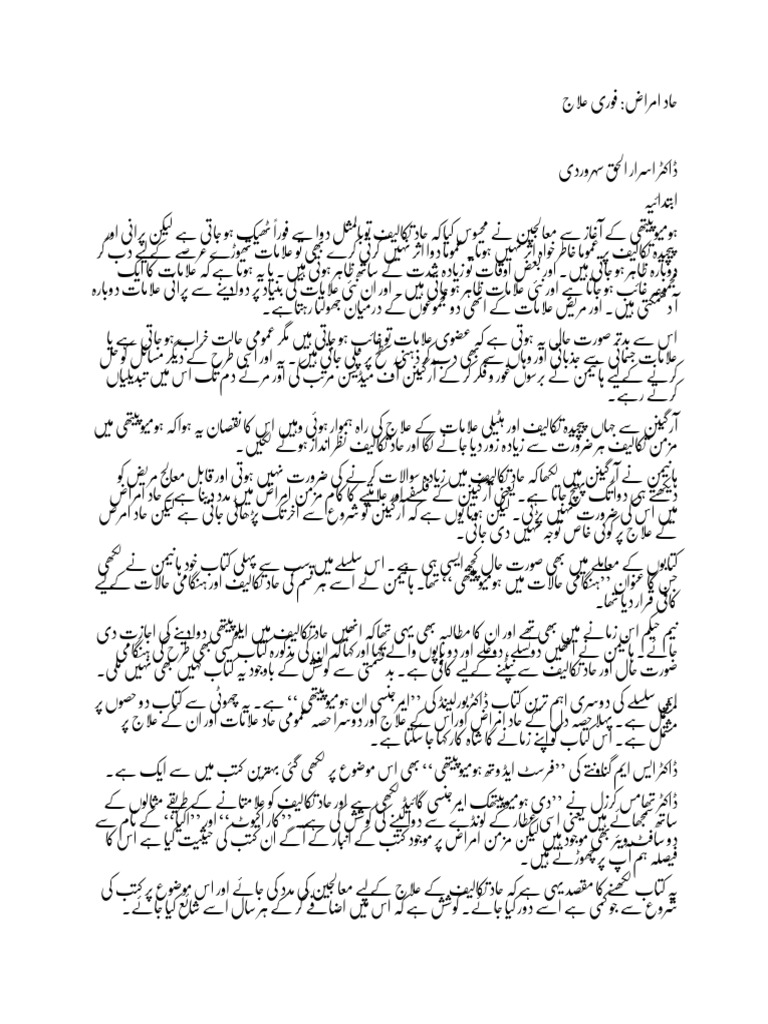 حاد امراض: فوری علاج
ڈاکٹر اسرار الحق سہروردی
ابتدائیہ
ہومیوپیتھی کے آغاز سے معالجین نے محسوس کیا کہ حاد تکالیف تو بالمثل دوا سے فوراً ٹھیک ہو جاتی ہے لیکن پرانی اور
پیچیدہ تکالیف پر عموماً خاطر خواہ اثر نہیں ہوتا۔ عموماً دوا اثر نہیں کرتی کرے بھی تو علامات تھوڑے عرصے کے لیے دب کر
دوبارہ ظاہر ہو جاتی ہیں۔ اور بعض اوقات تو زیادہ شدت کے ساتھ ظاہر ہوتی ہیں۔ یا یہ ہوتا ہے کہ علامات کا ایک
مجموعہ غائب ہو جاتا ہے اور نئی علامات ظاہر ہو جاتی ہیں۔ اور ان نئی علامات کی بنیاد پر دوا دینے سے پرانی علامات دوبارہ
آ دھمکتی ہیں۔ اور مریض علامات کے انھی دو مجموعوں کے درمیان جھولتا رہتا ہے۔
اس سے بدتر صورت حال یہ ہوتی ہے کہ عضوی علامات تو غائب ہو جاتی ہیں مگر عمومی حالت خراب ہو جاتی ہے یا
علامات جسمانی سے جذباتی اور وہاں سے بھی دب کر ذہنی سطح پر چلی جاتی ہیں۔ یہ اور اسی طرح کے دیگر مسائل کو حل
کرنے کے لیے ہانیمن نے برسوں غور و فکر کر کے آرگینن آف میڈیسن مرتب کی اور مرتے دم تک اس میں تبدیلیاں
کرتے رہے۔
آرگینن سے جہاں پیچیدہ تکالیف اور ہٹیلی علامات کے علاج کی راہ ہموار ہوئی وہیں اس کا نقصان یہ ہوا کہ ہومیوپیتھی میں
مزمن تکالیف ہر ضرورت سے زیادہ زور دیا جانے لگا اور حاد تکالیف نظر انداز ہونے لگیں۔
ہانیمن نے آرگینن میں لکھا کہ حاد تکالیف میں زیادہ سوالات کرنے کی ضرورت نہیں ہوتی اور قابل معالج مریض کو
دیکھتے ہی دوا تک پہنچ جاتا ہے۔ یعنی آرگینن کے فلسفے اور علامیے کا کام مزمن امراض میں مدد دینا ہے۔ حاد امراض
میں اس کی ضرورت نہیں پڑتی۔ لیکن ہوتا یوں ہے کہ آرگینن تو شروع سے آخر تک پڑھائی جاتی ہے لیکن حاد امرض
کے علاج پر کوئی خاص توجہ نہیں دی جاتی۔
کتابوں کے معاملے میں بھی صورت حال کچھ ایسی ہی ہے۔ اس سلسلے میں سب سے پہلی کتاب خود ہانیمن نے لکھی
جس کا عنوان ’’ہنگامی حالات میں ہومیوپیتھی‘‘ تھا۔ ہانیمن نے اسے ہر قسم کی حاد تکالیف اور ہنگامی حالات کے لیے
کافی قرار دیا تھا۔
نیم حکیم اس زمانے میں بھی تھے اور ان کا مطالبہ بھی یہی تھا کہ انھیں حاد تکالیف میں ایلوپیتھی دوا دینے کی اجازت دی
جائے۔ ہانیمن نے انھیں دوسلے، دوغلے اور دو ناپوں والے کہا اور کہا کہ ان کی مذکورہ کتاب کسی بھی طرح کی ہنگامی
صورت حال اور حاد تکالیف سے نپٹنے کے لیے کافی ہے۔ بد قسمتی سے کوشش کے باوجود یہ کتاب کہیں بھی نہیں ملی۔
اس سلسلے کی دوسری اہم ترین کتاب ڈاکٹر بورلینڈ کی ’’ایمرجنسی ان ہومیوپیتھی‘‘ ہے۔ یہ چھوٹی سے کتاب دو حصوں پر
مشتمل ہے۔ پہلا حصہ دل کے حاد امراض اور اس کے علاج اور دوسرا حصہ عمومی حاد علامات اور ان کے علاج پر
مشتمل ہے۔ اس کتاب کو اپنے زمانے کا شاہ کار کہا جا سکتا ہے۔
ڈاکٹر ایس ایم گناونتے کی ’’فرسٹ ایڈ وتھ ہومیوپیتھی‘‘ بھی اس موضوع پر لکھی گئی بہترین کتب میں سے ایک ہے۔
ڈاکٹر تھامس کرزل نے ’’دی ہومیوپیتھک ایمرجنسی گائیڈ لکھی ہے اور حاد تکالیف کو علامتانے کے طریقے مثالوں کے
ساتھ سمجھائے ہیں یعنی اسی عطار کے لونڈے سے دوا لینے کی کوشش کی ہے۔ ’’کارا کیوٹ‘‘ اور ’’اکیا‘‘ کے نام سے
دو سافٹ ویئر بھی موجود ہیں لیکن مزمن امراض پر موجود کتب کے انبار کے آگے ان کتب کی حیثیت کیا ہے اس کا
فیصلہ ہم آپ پر چھوڑتے ہیں۔
یہ کتاب لکھنے کا مقصد یہی ہے کہ حاد تکالیف کے علاج کے لیے معالجین کی مدد کی جائے اور اس موضوع پر کتب کی
شروع سے جو کمی ہے اسے دور کیا جائے۔ کوشش ہے کہ اس میں اضافے کر کے ہر سال اسے شائع کیا جائے۔